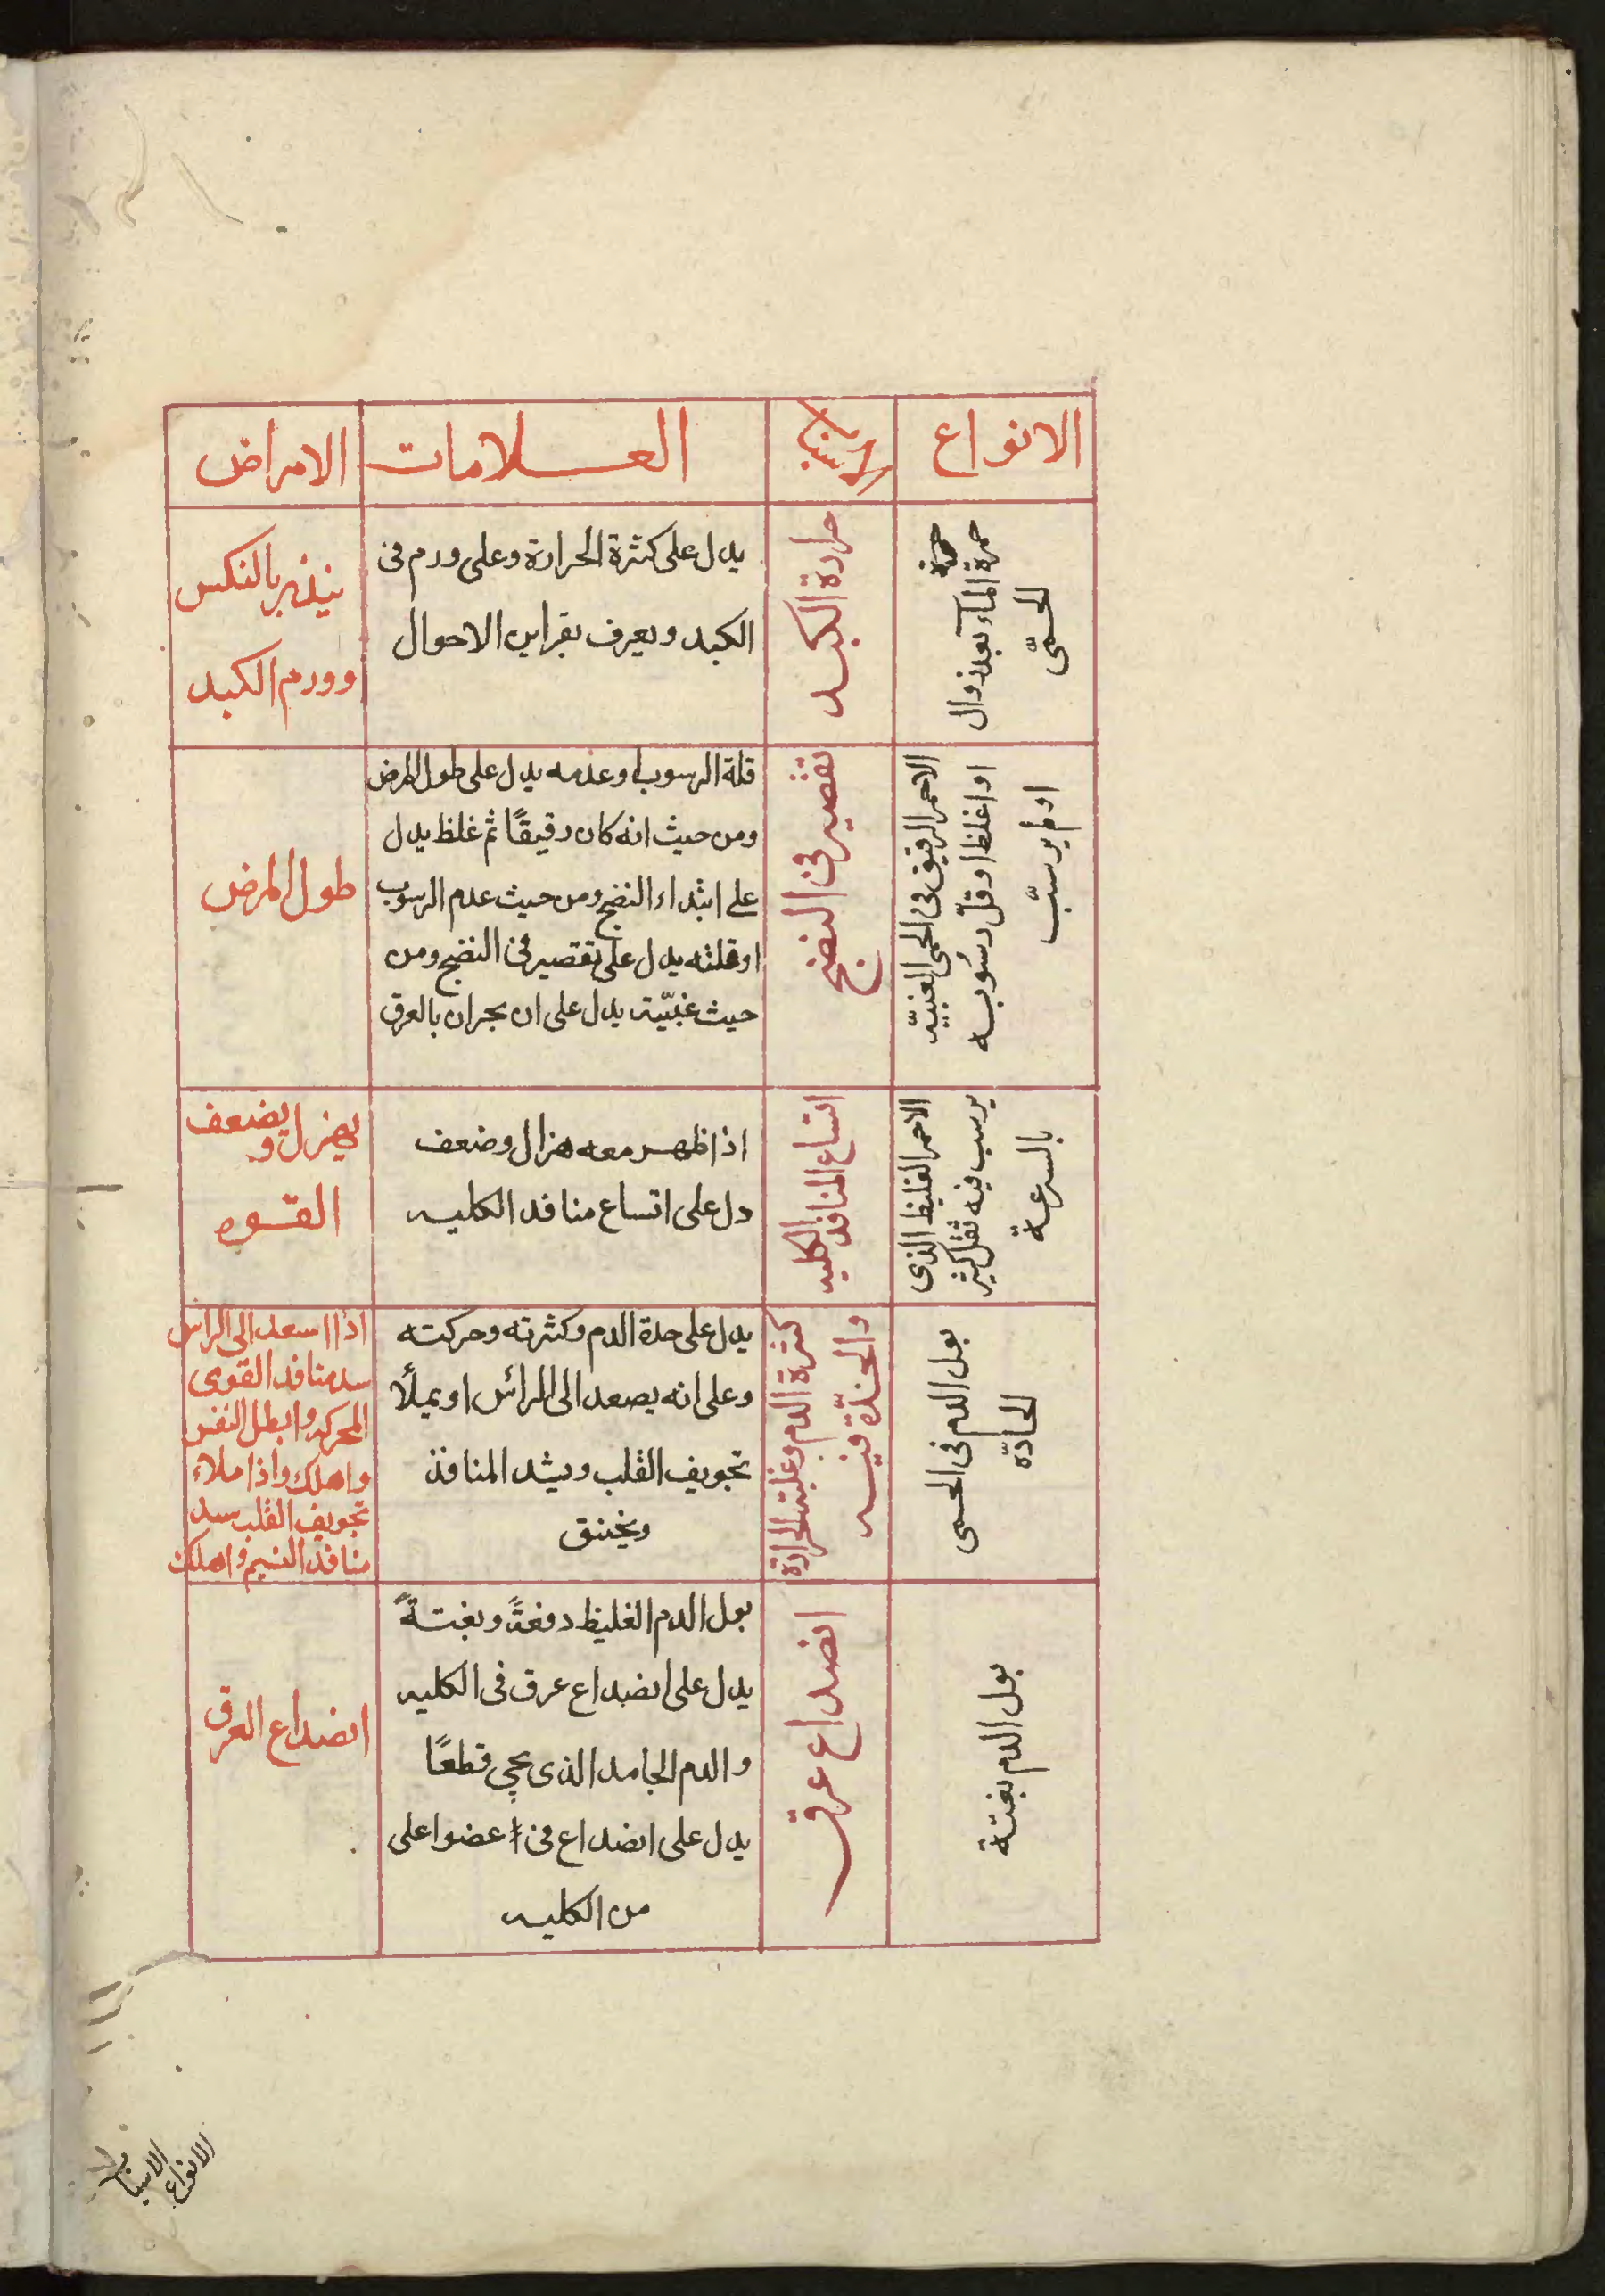 الانواع
الاسباب
العلامات
الامراض
حمرة
حمرة الماء بعد زوال
الحمّى
حرارة الكبد
يدل على كثرة الحرارة وعلى ورم فى
الكبد ويعرف بقراين الاحوال
ينذر بالنكس
وورم الكبد
الاحمر الرقيق فى الحمى الغبيّه
او اغلظ او قلّ رسوبه
او لم يرسب
تقصير فى النضج
قلة الرسوب او عدمه يدل على طول المرض
ومن حيث انه كان رقيقًا ثم غلظ يدل
على ابتداء النضج ومن حيث عدم الرسوب
او قلته يدل على تقصير فى النضج ومن
حيث غبيّته يدل على ان بحران بالعرق
طول المرض
الاحمر الغليظ الذى
يرسب فيه ثقل كثير
بالسرعة
اتساع المنافد
الكليه
اذا ظهر معه هزال وضعف
دل على اتساع منافد الكليه
يهزل ويضعف
القوه
بول الدم فى الحمى
الحادّة
كثرة الدم وغلبته الحرارة
والحدّة فيه
يدل على حدة الدم وكثرته وحركته
وعلى انه يصعد الى الرأس او يملأ
تجويف القلب ويشد المنافذ
ويخنق
اذا اسعد الى الراس
سد منافد القوى
المحركه وابطل النفس
واهلك واذا ملاء
تجويف القلب سد
منافد النسيم واهلك
بول الدم بغتة
انصداع عرق
بول الدم الغليظ دفعةً وبغتةً
يدل على انصداع عرق فى الكليه
والدم الجامد الذى يجى قطعًا
يدل على انصداع فى عضو اعلى
من الكليه
انصداع العرق
الانواع
الاسباب